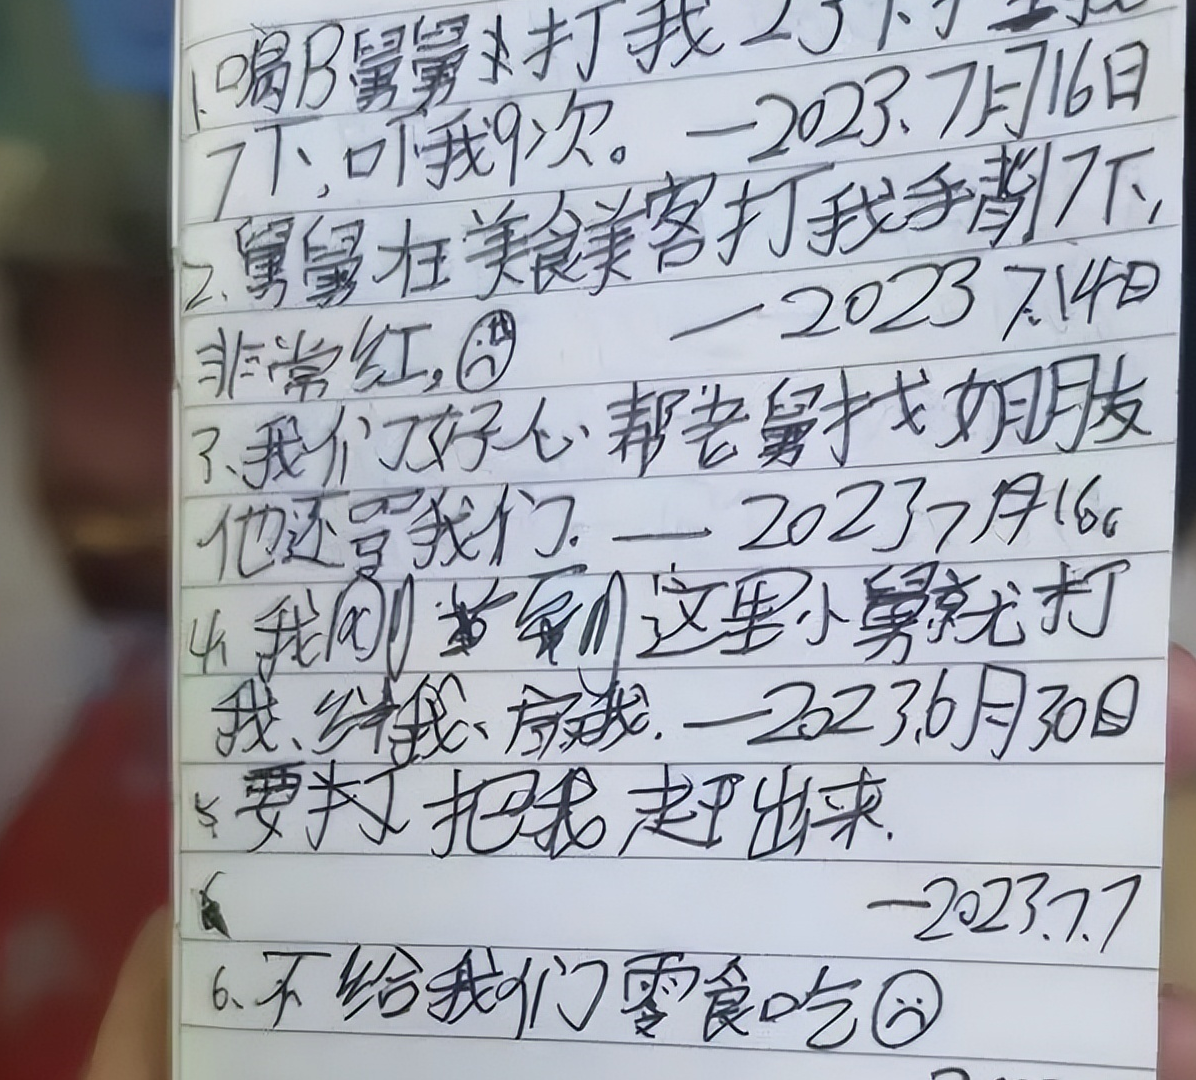 1.喝B舅舅打我23下
7下,吓我9次。—2023、7月16日
2、舅舅在美食美客打我手背7下,
非常红。 —2023 7.14日
3、我们好心帮老舅找女朋友
他还骂我们. — 2023 7月16。
4、我刚到这里小舅就打
我、我、我.—2023.6月30日
5、要打把我赶出来.
6
—2023.7.7
6、不给我们零食吃